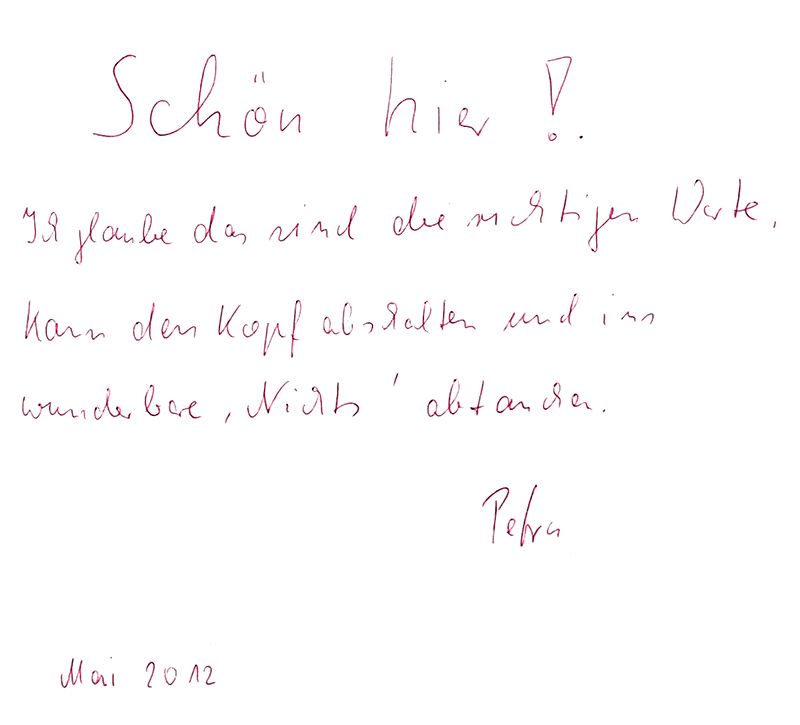 Schön hier!.
Ich glaube das sind die richtigen Worte.
Kann den Kopf abschalten und ins
wunderbare ‚Nichts' abtauchen.
Petra
Mai 2012